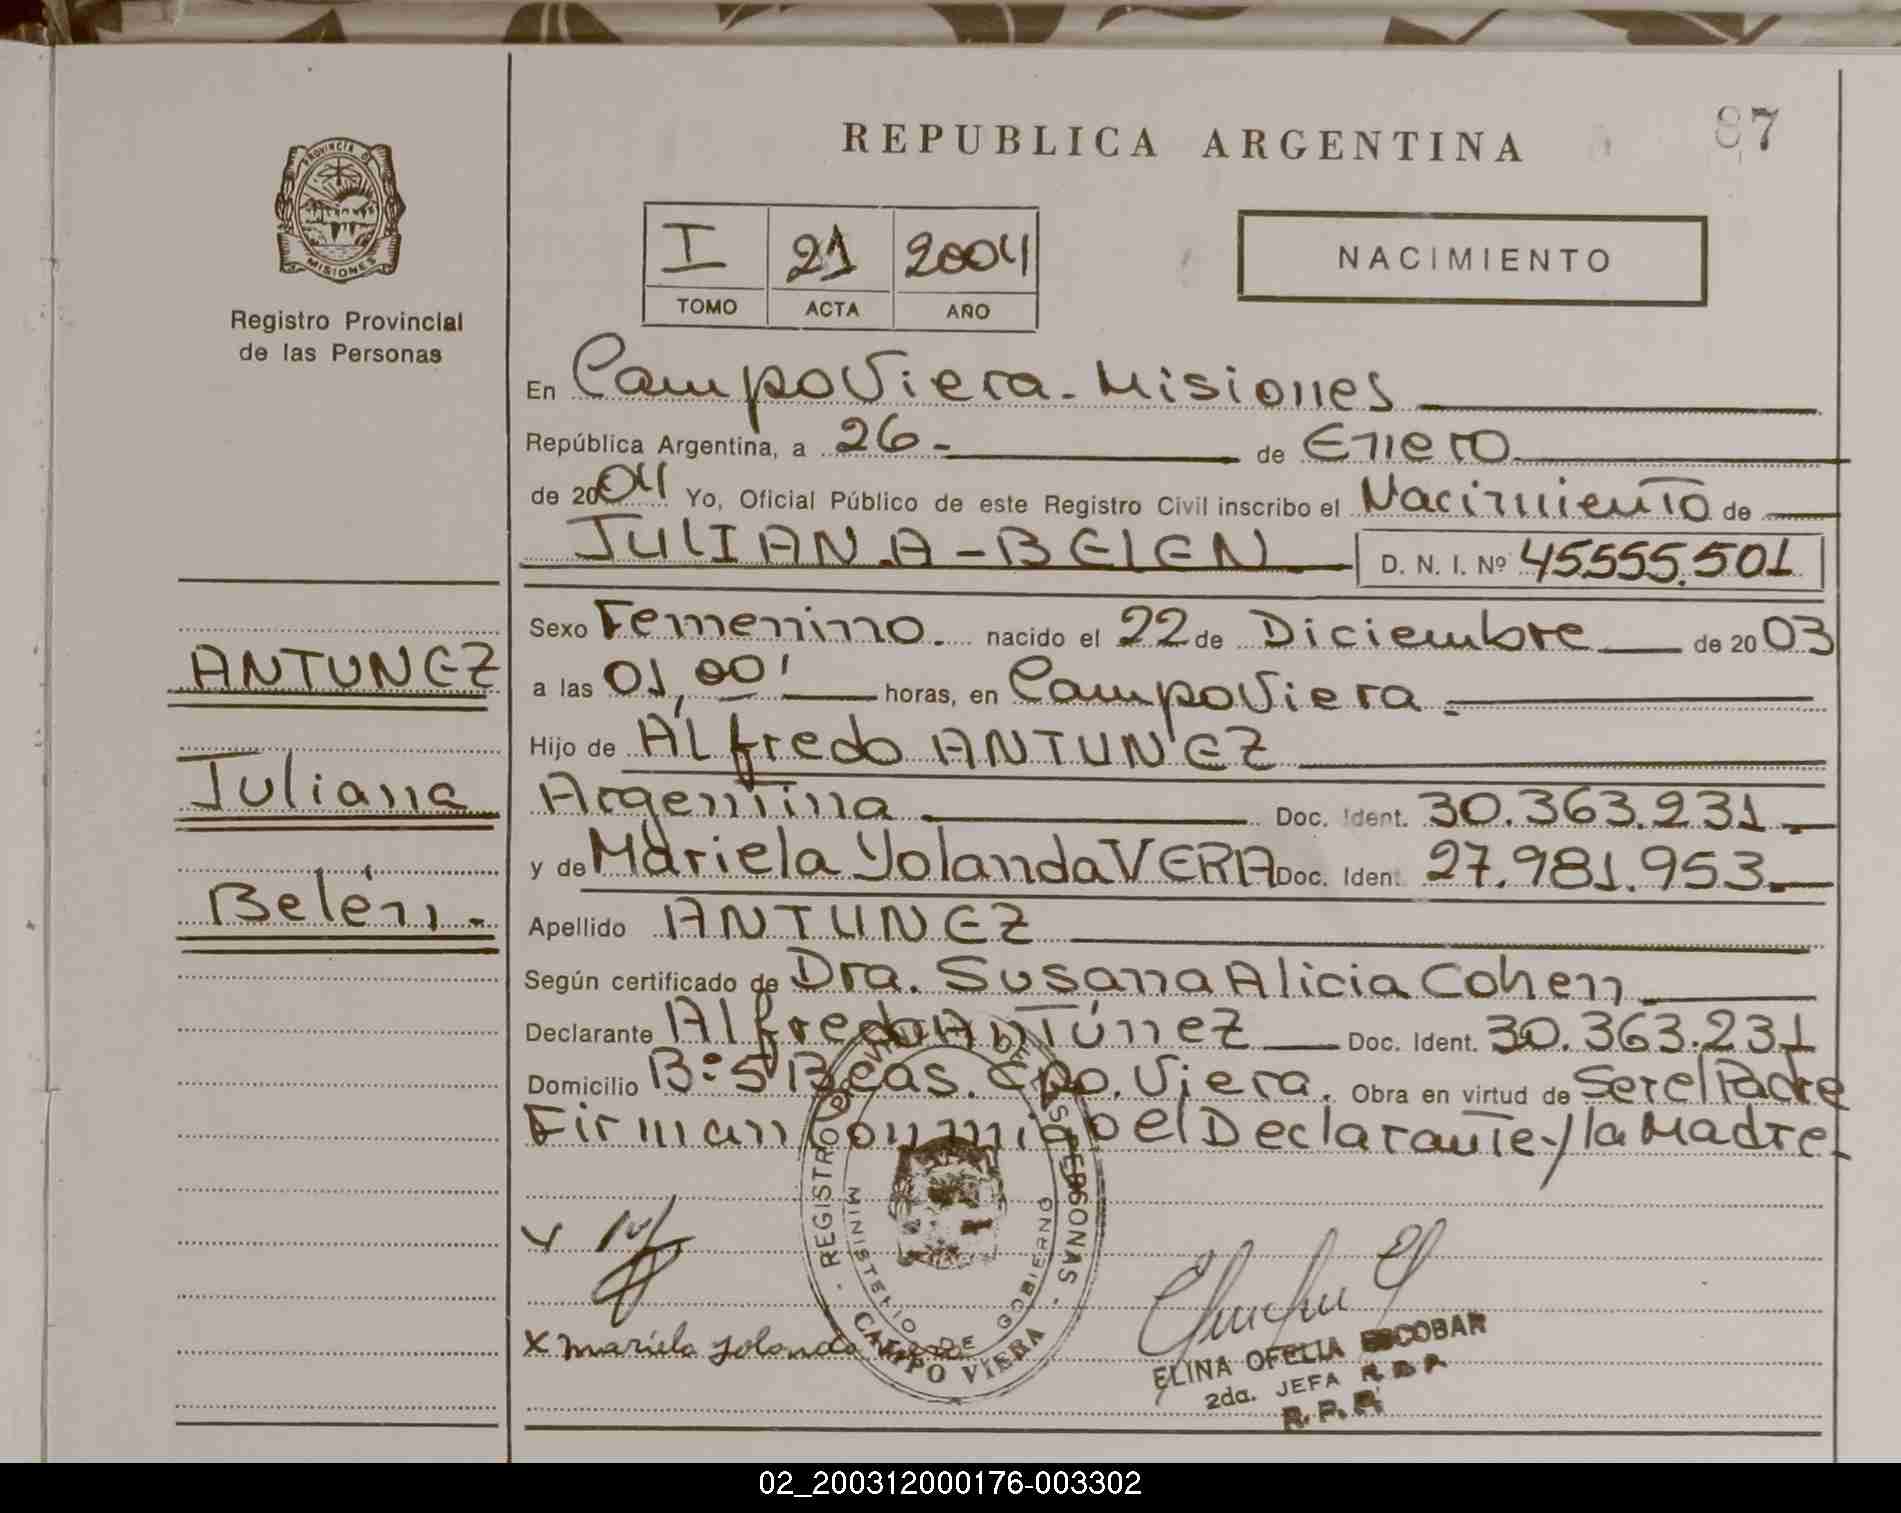 REPUBLICA ARGENTINA
87
PROVINCIA DE
MISIONES
Registro Provincial
de las Personas
I 21 2004
TOMO ACTA AÑO
NACIMIENTO
En Campo Viera - Misiones
República Argentina, a 26 - de Enero
de 2004 Yo, Oficial Público de este Registro Civil inscribo el Nacimiento de
JULIANA - BELEN D. N. I. Nº 45.555.501
Sexo Femenino. nacido el 22 de Diciembre de 2003
ANTUNEZ
a las 01,00' horas, en Campo Viera.
Hijo de Alfredo ANTUNEZ
Juliana
Argentina Doc. Ident. 30.363.231
y de Mariela Yolanda VERA Doc. Ident. 27.981.953
Belén.-
Apellido ANTUNEZ
Según certificado de Dra. Susana Alicia Cohen
Declarante Alfredo Antúnez Doc. Ident. 30.363.231
Domicilio Bº Sº Beas. Cpo. Viera. Obra en virtud de Ser el Padre
Firman Conmigo el Declarante y la Madre.
REGISTRO PROVINCIAL DE LAS PERSONAS
MINISTERIO DE GOBIERNO
CAMPO VIERA
x Mariela Yolanda Vera
ELINA OFELIA ESCOBAR
2da. JEFA
R. P. P.
02_200312000176-003302